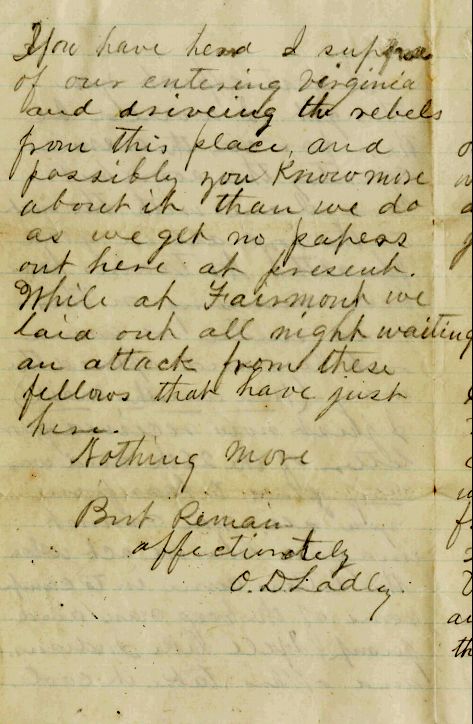 You have herd I suppose
of our entering virginia
and driveing the rebels
from this place, and
possibly you Know more
about it than we do
as we get no papers
out here at present.
While at Fairmont we
laid out all night waiting
an attack from these
fellows that have just
here.
Nothing More
But Remain
affectionately
O. D. Ladley.